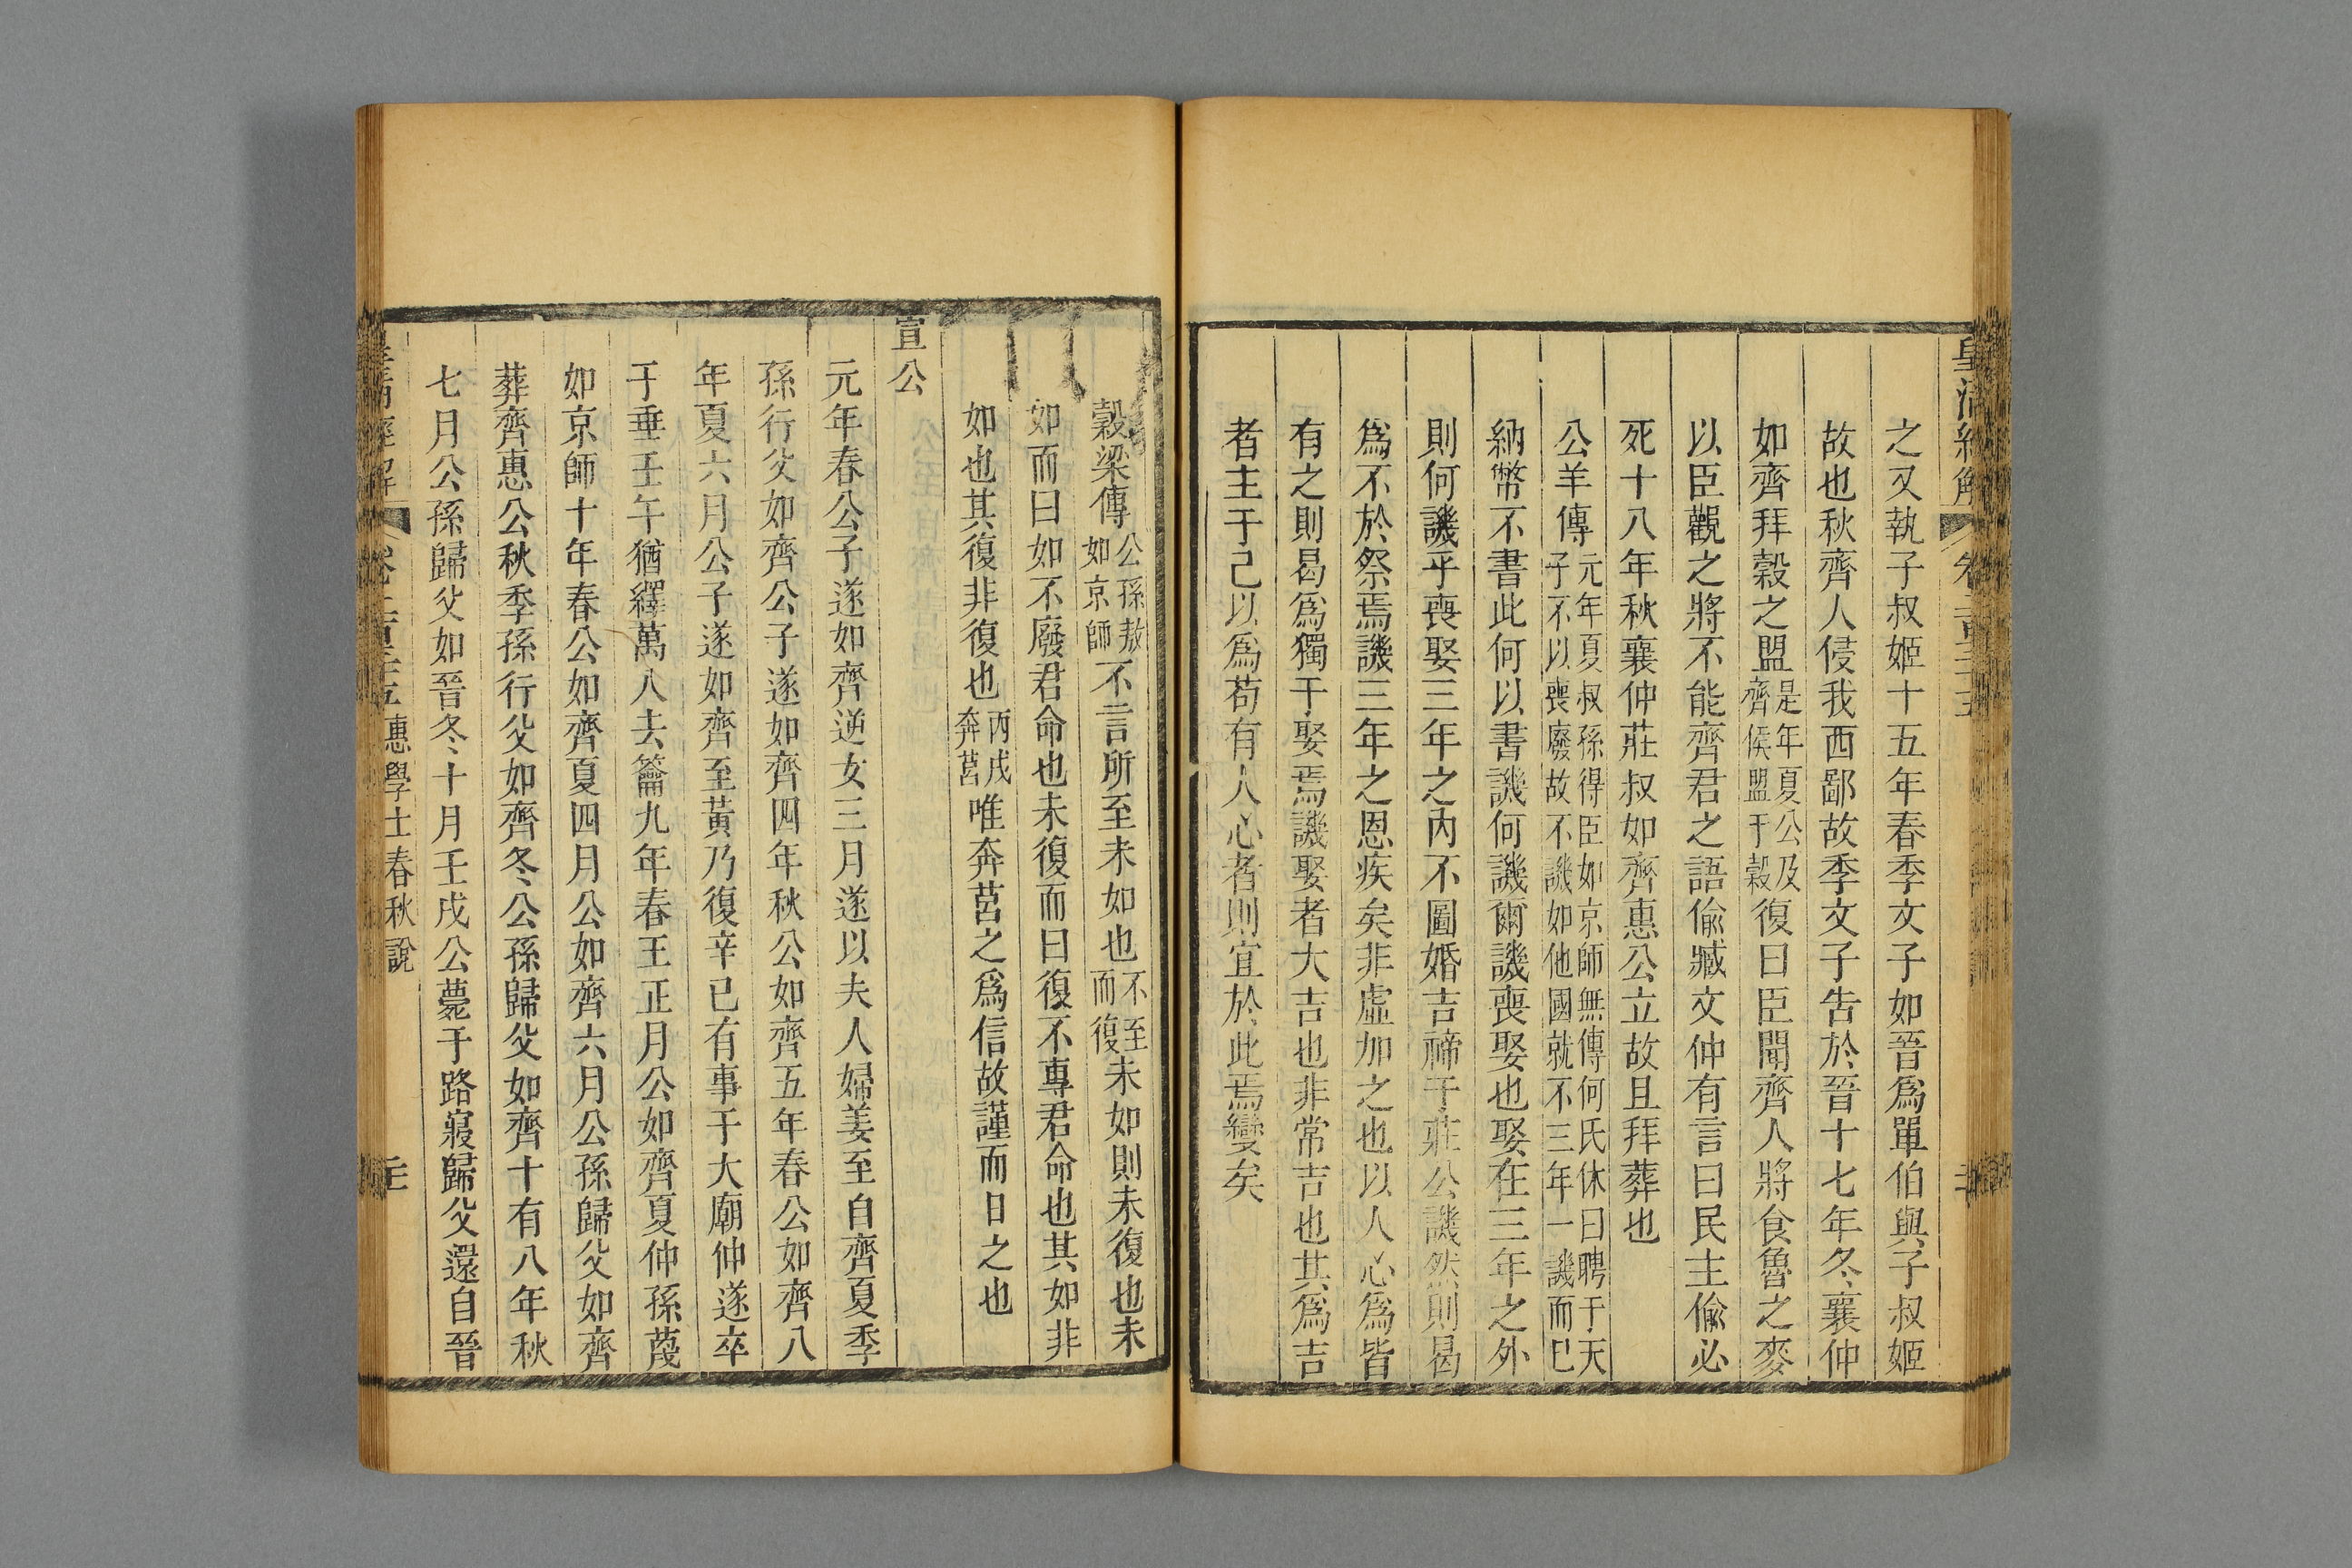 皇清經解 卷二百三十五 二十
之又執子叔姬十五年春季文子如晉爲單伯與子叔姬
故也秋齊人侵我西鄙故季文子告於晉十七年冬襄仲
如齊拜穀之盟是年夏公及齊侯盟于穀復曰臣聞齊人將食魯之麥
以臣觀之將不能齊君之語偷臧文仲有言曰民主偷必
死十八年秋襄仲莊叔如齊惠公立故且拜葬也
公羊傳元年夏叔孫得臣如京師無傳何氏休曰聘于天子不以喪廢故不譏如他國就不三年一譏而已
納幣不書此何以書譏何譏爾譏喪娶也娶在三年之外
則何譏乎喪娶三年之內不圖婚吉禘于莊公譏然則曷
爲不於祭焉譏三年之恩疾矣非虛加之也以人心爲皆
有之則曷爲獨于娶焉譏娶者大吉也非常吉也其爲吉
者主于己以爲苟有人心者則宜於此焉變矣
穀梁傳公孫敖如京師不言所至未如也不至而復未如則未復也未
如而曰如不廢君命也未復而曰復不專君命也其如非
如也其復非復也丙戌奔莒唯奔莒之爲信故謹而日之也
宣公
元年春公子遂如齊逆女三月遂以夫人婦姜至自齊夏季
孫行父如齊公子遂如齊四年秋公如齊五年春公如齊八
年夏六月公子遂如齊至黃乃復辛巳有事于大廟仲遂卒
于垂壬午猶繹萬入去籥九年春王正月公如齊夏仲孫蔑
如京師十年春公如齊夏四月公如齊六月公孫歸父如齊
葬齊惠公秋季孫行父如齊冬公孫歸父如齊十有八年秋
七月公孫歸父如晉冬十月壬戌公薨于路寢歸父還自晉
皇清經解 卷二百三十五 惠學士春秋說